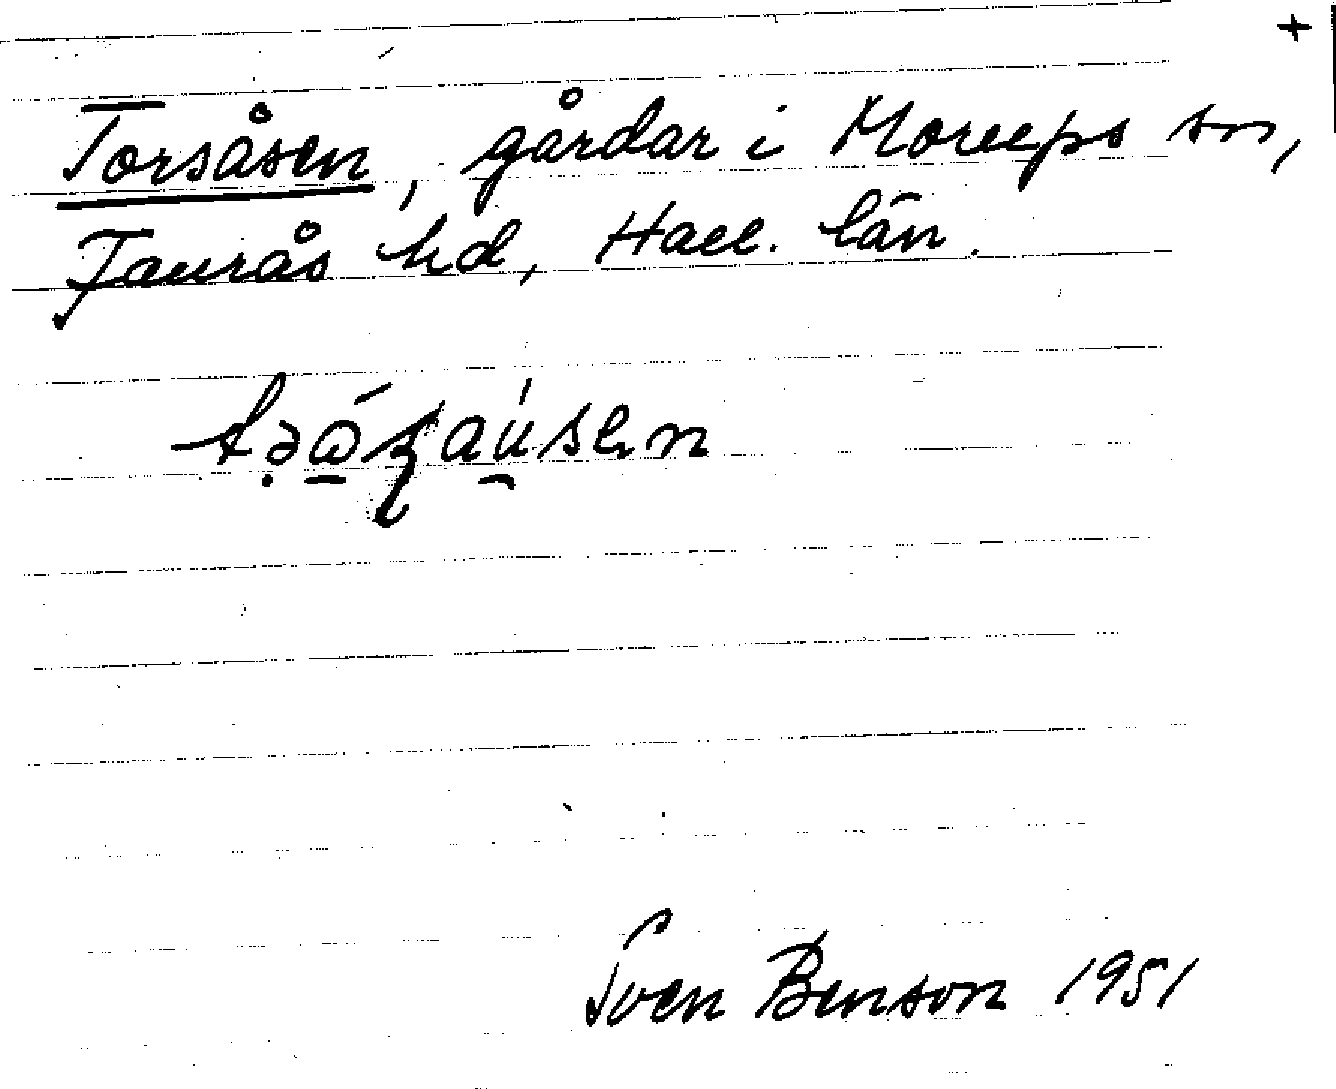 +
Torsåsen, gårdar i Morups sn,
Faurås hd, Hall. län.
Sven Benson 1951